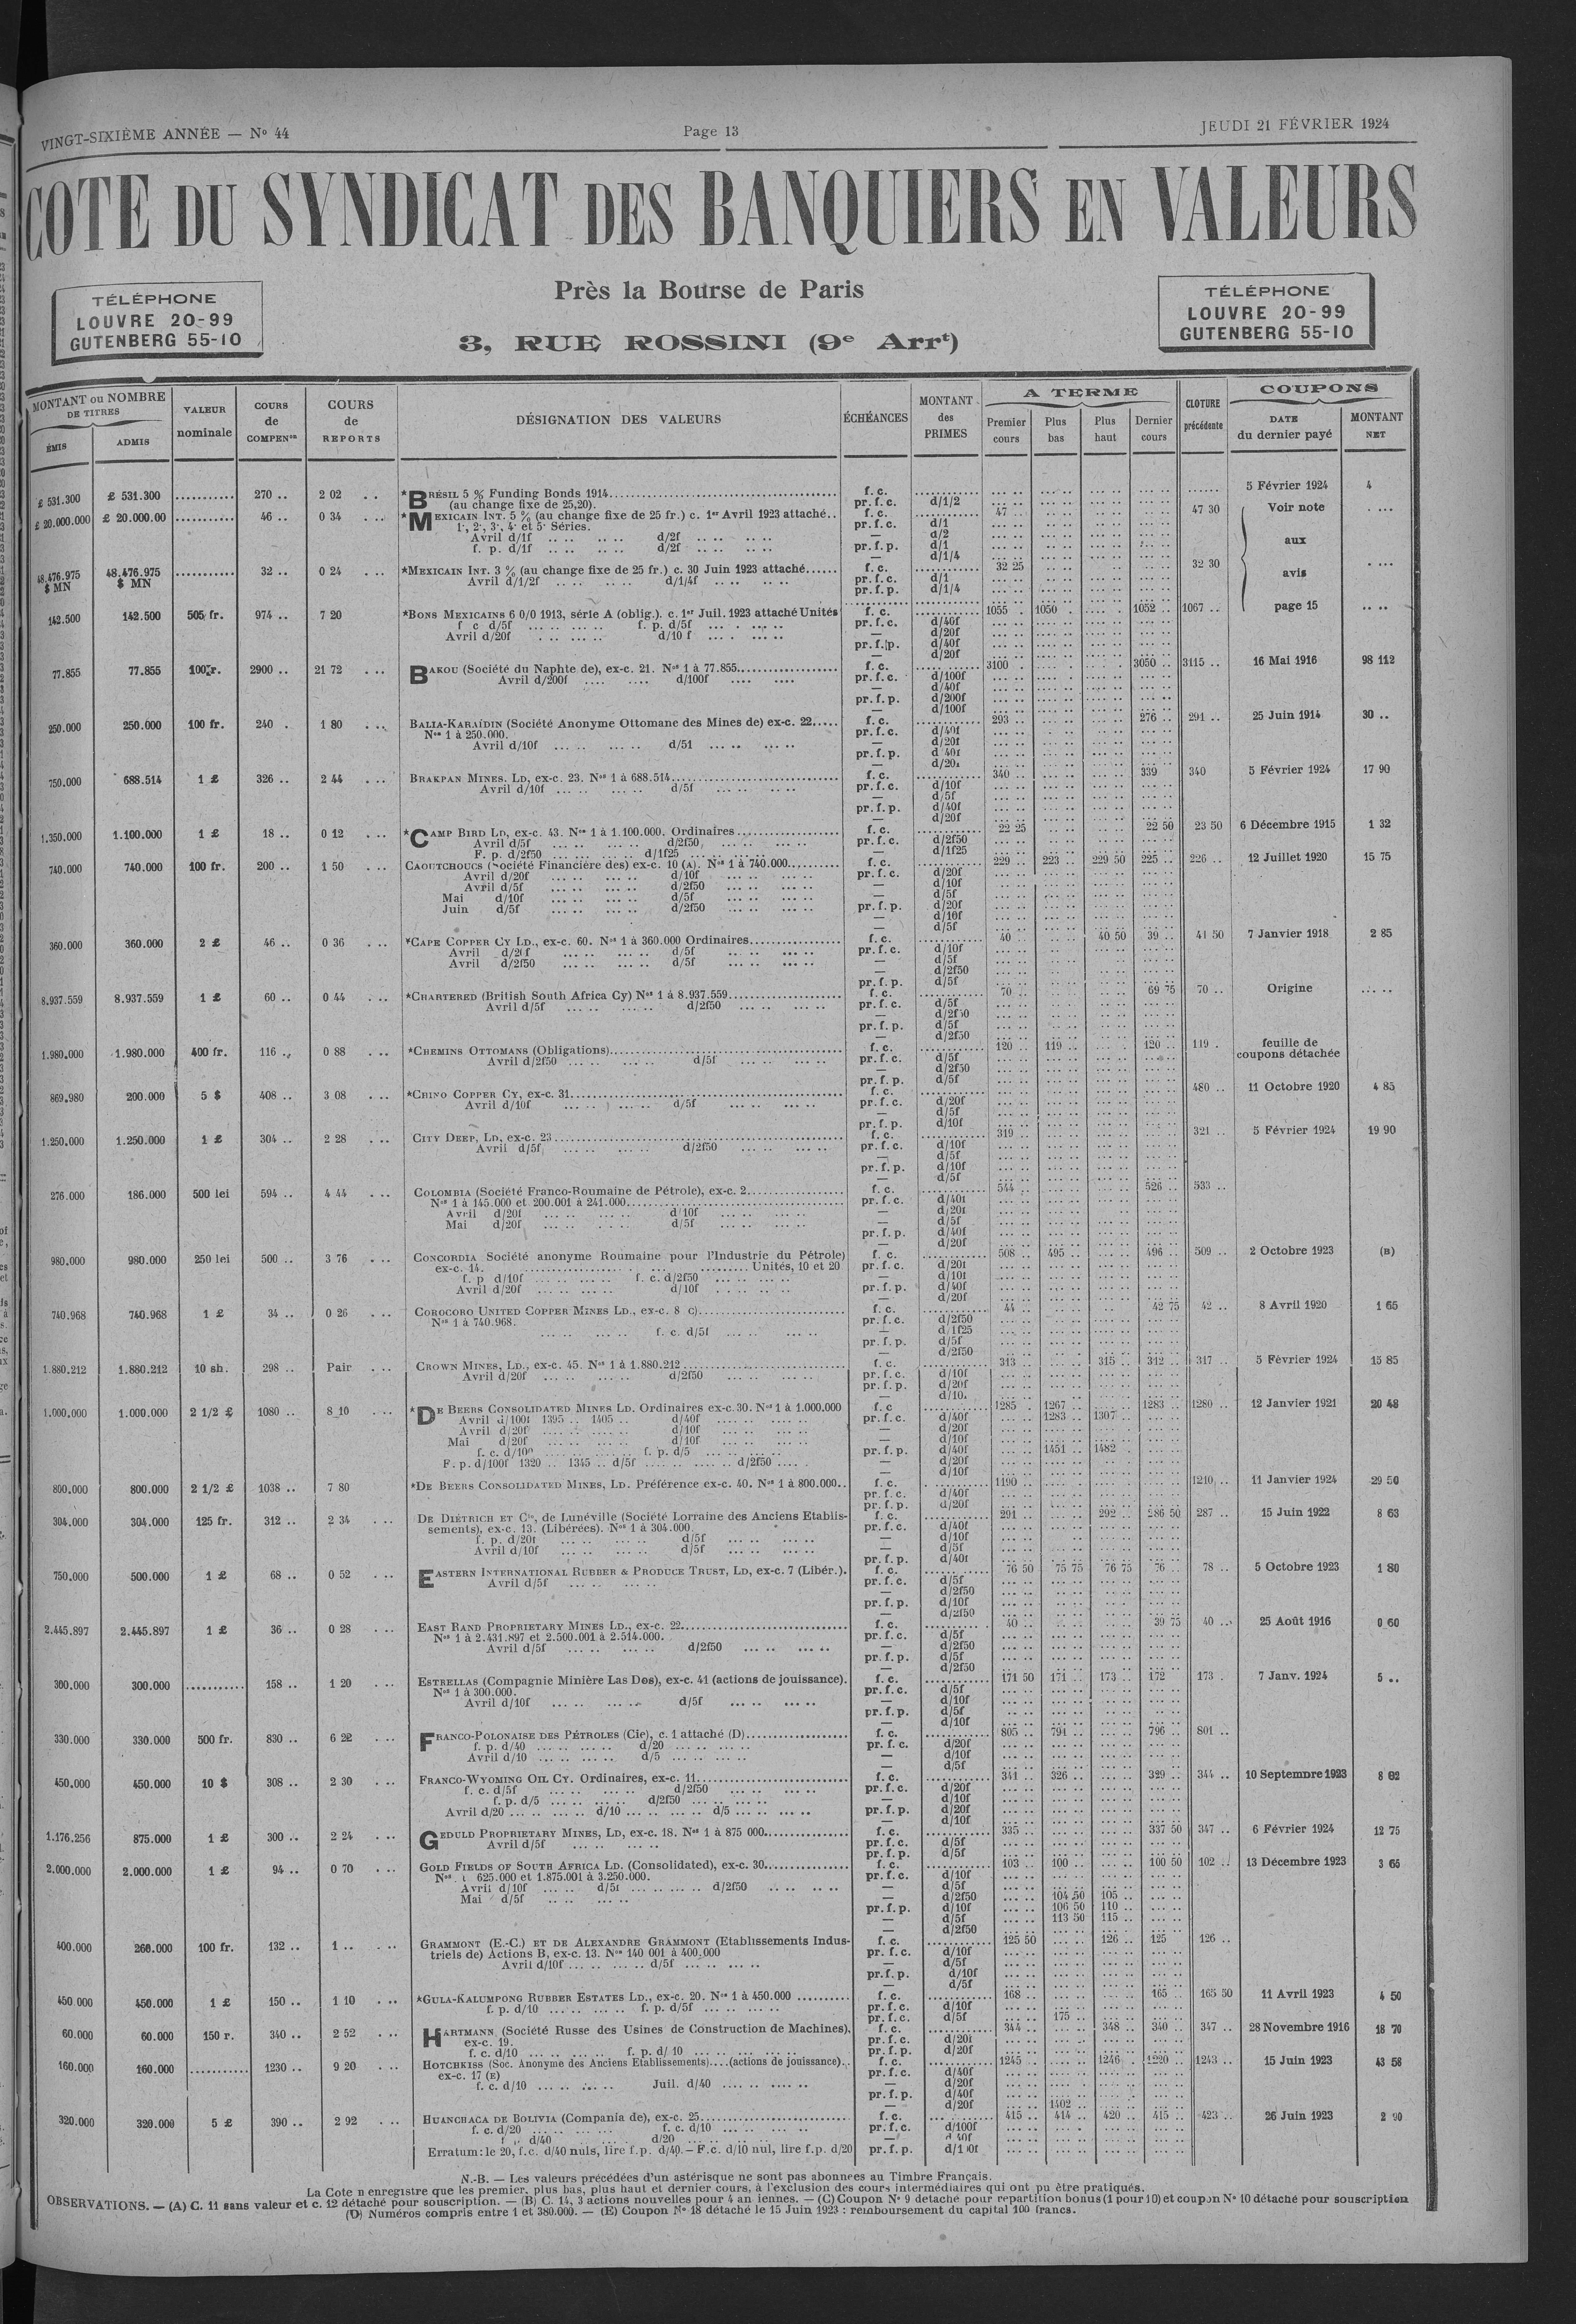 VINGT-SIXIÈME ANNÉE — Nº 44
Page 13
JEUDI 21 FÉVRIER 1924
COTE DU SYNDICAT DES BANQUIERS EN VALEURS
Près la Bourse de Paris
3, RUE ROSSINI (9e Arrt)
TÉLÉPHONE
LOUVRE 20-99
GUTENBERG 55-10
TÉLÉPHONE
LOUVRE 20-99
GUTENBERG 55-10
MONTANT ou NOMBRE DE TITRES
ÉMIS
ADMIS
VALEUR nominale
COURS de COMPENon
COURS de REPORTS
DÉSIGNATION DES VALEURS
ÉCHÉANCES
MONTANT des PRIMES
A TERME
Premier cours
Plus bas
Plus haut
Dernier cours
CLOTURE précédente
COUPONS
DATE du dernier payé
MONTANT NET
£ 531.300 £ 531.300 ........... 270 .. 2 02 .. *BRÉSIL 5 % Funding Bonds 1914 f. c. 5 Février 1924 4
(au change fixe de 25,20). pr. f. c. d/1/2
£ 20.000.000 £ 20.000.00 ........... 46 .. 0 34 ... *MEXICAIN INT. 5 % (au change fixe de 25 fr.) c. 1er Avril 1923 attaché.. f. c. 47 47 30 Voir note
1·, 2·, 3·, 4· et 5· Séries. pr. f. c. d/1
Avril d/1f d/2f — d/2
f. p. d/1f d/2f pr. f. p. d/1 aux
— d/1/4
48.476.975 $ MN 48.476.975 $ MN ........... 32 .. 0 24 ... *MEXICAIN INT. 3 % (au change fixe de 25 fr.) c. 30 Juin 1923 attaché...... f. c. 32 25 32 30 avis
Avril d/1/2f d/1/4f pr. f. c. d/1
pr. f. p. d/1/4
142.500 142.500 505 fr. 974 .. 7 20 *BONS MEXICAINS 6 0/0 1913, série A (oblig.). c. 1er Juil. 1923 attaché Unités f. c. 1055 1050 1052 .. 1067 .. page 15
f c d/5f f. p. d/5f pr. f. c. d/40f
Avril d/20f d/10 f — d/20f
pr. f. p. d/40f
— d/20f
77.855 77.855 100 r. 2900 .. 21 72 ... BAKOU (Société du Naphte de), ex-c. 21. Nos 1 à 77.855 f. c. 3100 3050 .. 3115 .. 16 Mai 1916 98 112
Avril d/200f d/100f pr. f. c. d/100f
— d/40f
pr. f. p. d/200f
— d/100f
250.000 250.000 100 fr. 240 . 1 80 ... BALIA-KARAÏDIN (Société Anonyme Ottomane des Mines de) ex-c. 22..... f. c. 293 .. 276 .. 291 .. 25 Juin 1914 30 ..
Nos 1 à 250.000. pr. f. c. d/40f
Avril d/10f d/51 — d/20f
pr. f. p. d 40f
— d/20f
750.000 688.514 1 £ 326 .. 2 44 ... BRAKPAN MINES. LD, ex-c. 23. Nos 1 à 688.514 f. c. 340 .. 339 340 5 Février 1924 17 90
Avril d/10f d/5f pr. f. c. d/10f
— d/5f
pr. f. p. d/40f
— d/20f
1.350.000 1.100.000 1 £ 18 .. 0 12 ... *CAMP BIRD LD, ex-c. 43. Nos 1 à 1.100.000. Ordinaires f. c. 22 25 22 50 23 50 6 Décembre 1915 1 32
Avril d/5f d/2f50 pr. f. c. d/2f50
F. p. d/2f50 d/1f25 — d/1f25
740.000 740.000 100 fr. 200 .. 1 50 ... CAOUTCHOUCS (Société Financière des) ex-c. 10 (A). Nos 1 à 740.000 f. c. 229 .. 223 .. 229 50 225 .. 226 .. 12 Juillet 1920 15 75
Avril d/20f d/10f pr. f. c. d/20f
Avril d/5f d/2f50 — d/10f
Mai d/10f d/5f — d/5f
Juin d/5f d/2f50 pr. f. p. d/20f
— d/10f
— d/5f
360.000 360.000 2 £ 46 .. 0 36 ... *CAPE COPPER CY LD., ex-c. 60. Nos 1 à 360.000 Ordinaires f. c. 40 .. 40 50 39 .. 41 50 7 Janvier 1918 2 85
Avril d/2f f d/5f pr. f. c. d/10f
Avril d/2f50 d/5f — d/5f
— d/2f50
pr. f. p. d/5f
8.937.559 8.937.559 1 £ 60 .. 0 44 ... *CHARTERED (British South Africa Cy) Nos 1 à 8.937.559 f. c. 70 .. 69 75 70 .. Origine
Avril d/5f d/2f50 pr. f. c. d/5f
— d/2f50
pr. f. p. d/5f
— d/2f50
1.980.000 1.980.000 400 fr. 116 .. 0 88 ... *CHEMINS OTTOMANS (Obligations) f. c. 120 .. 119 .. 120 .. 119 . feuille de coupons détachée
Avril d/2f50 d/5f pr. f. c. d/5f
— d/2f50
pr. f. p. d/5f
869.980 200.000 5 $ 408 .. 3 08 ... *CHINO COPPER CY, ex-c. 31 f. c. 480 .. 11 Octobre 1920 4 85
Avril d/10f d/5f pr. f. c. d/20f
— d/5f
pr. f. p. d/10f
1.250.000 1.250.000 1 £ 304 .. 2 28 ... CITY DEEP, LD, ex-c. 23 f. c. 319 321 .. 5 Février 1924 19 90
Avril d/5f d/2f50 pr. f. c. d/10f
— d/5f
pr. f. p. d/10f
— d/5f
276.000 186.000 500 lei 594 .. 4 44 ... COLOMBIA (Société Franco-Roumaine de Pétrole), ex-c. 2 f. c. 544 .. 526 .. 533 ..
Nos 1 à 145.000 et 200.001 à 241.000 pr. f. c. d/40f
Avril d/20f d/10f — d/20f
Mai d/20f d/5f — d/5f
pr. f. p. d/40f
— d/20f
980.000 980.000 250 lei 500 .. 3 76 ... CONCORDIA Société anonyme Roumaine pour l'Industrie du Pétrole) f. c. 508 .. 495 .. 496 .. 509 .. 2 Octobre 1923 (B)
ex-c. 14. Unités, 10 et 20 pr. f. c. d/20f
f. p d/10f f. c. d/2f50 — d/10f
Avril d/20f d/10f pr. f. p. d/40f
— d/20f
740.968 740.968 1 £ 34 .. 0 26 ... COROCORO UNITED COPPER MINES LD., ex-c. 8 C) f. c. 44 .. 42 75 42 .. 8 Avril 1920 1 65
Nos 1 à 740.968. pr. f. c. d/2f50
f. c. d/5f — d/1f25
pr. f. p. d/5f
— d/2f50
1.880.212 1.880.212 10 sh. 298 .. Pair ... CROWN MINES, LD., ex-c. 45. Nos 1 à 1.880.212 f. c. 313 .. 315 .. 312 .. 317 .. 5 Février 1924 15 85
Avril d/20f d/2f50 pr. f. c. d/10f
pr. f. p. d/20f
— d/10.
1.000.000 1.000.000 2 1/2 £ 1080 .. 8 10 ... *DE BEERS CONSOLIDATED MINES LD. Ordinaires ex-c. 30. Nos 1 à 1.000.000 f. c 1285 . 1267 .. 1283 .. 1280 .. 12 Janvier 1921 20 48
Avril d/100f 1395 .. 1405 .. d/40f pr. f. c. d/40f 1283 .. 1307
Avril d/20f d/10f — d/20f
Mai d/20f d/10f — d/10f
f. c. d/10f f. p. d/5 pr. f. p. d/40f 1451 .. 1482
F. p. d/100f 1320 .. 1345 .. d/5f d/2f50 — d/20f
— d/10f
800.000 800.000 2 1/2 £ 1038 .. 7 80 *DE BEERS CONSOLIDATED MINES, LD. Préférence ex-c. 40. Nos 1 à 800.000.. f. c. 1190 1210 .. 11 Janvier 1924 29 50
pr. f. c. d/40f
pr. f. p. d/20f
304.000 304.000 125 fr. 312 .. 2 34 ... DE DIÉTRICH ET Cie, de Lunéville (Société Lorraine des Anciens Etablis- f. c. 291 .. 292 .. 286 50 287 .. 15 Juin 1922 8 63
sements), ex-c. 13. (Libérées). Nos 1 à 304.000. pr. f. c. d/40f
f. p. d/20f d/5f — d/10f
Avril d/10f d/5f — d/5f
pr. f. p. d/40f
750.000 500.000 1 £ 68 .. 0 52 ... EASTERN INTERNATIONAL RUBBER & PRODUCE TRUST, LD, ex-c. 7 (Libér.). f. c. 76 50 75 75 76 75 76 .. 78 .. 5 Octobre 1923 1 80
Avril d/5f pr. f. c. d/5f
— d/2f50
pr. f. p. d/10f
— d/2f50
2.445.897 2.445.897 1 £ 36 .. 0 28 ... EAST RAND PROPRIETARY MINES LD., ex-c. 22 f. c. 40 .. 39 75 40 .. 25 Août 1916 0 60
Nos 1 à 2.431.897 et 2.500.001 à 2.514.000. pr. f. c. d/5f
Avril d/5f d/2f50 — d/2f50
pr. f. p. d/5f
— d/2f50
300.000 300.000 .......... 158 .. 1 20 ... ESTRELLAS (Compagnie Minière Las Dos), ex-c. 41 (actions de jouissance). f. c. 171 50 171 .. 173 .. 172 173 . 7 Janv. 1924 5 ..
Nos 1 à 300.000. pr. f. c. d/5f
Avril d/10f d/5f — d/10f
pr. f. p. d/5f
— d/10f
330.000 330.000 500 fr. 830 .. 6 22 ... FRANCO-POLONAISE DES PÉTROLES (Cie), c. 1 attaché (D) f. c. 805 .. 791 .. 796 .. 801 ..
f. p. d/40 d/20 pr. f. c. d/20f
Avril d/10 d/5 — d/10f
— d/5f
450.000 450.000 10 $ 308 .. 2 30 ... FRANCO-WYOMING OIL CY. Ordinaires, ex-c. 11 f. c. 341 .. 326 .. 329 .. 344 .. 10 Septemnre 1923 8 02
f. c. d/5f d/2f50 pr. f. c. d/20f
f. p. d/5 d/2f50 — d/10f
Avril d/20 d/10 d/5 pr. f. p. d/20f
— d/10f
1.176.256 875.000 1 £ 300 .. 2 24 ... GEDULD PROPRIETARY MINES, LD, ex-c. 18. Nos 1 à 875 000 f. c. 335 337 50 347 .. 6 Février 1924 12 75
Avril d/5f pr. f. c. d/5f
pr. f. p. d/5f
2.000.000 2.000.000 1 £ 94 .. 0 70 ... GOLD FIELDS OF SOUTH AFRICA LD. (Consolidated), ex-c. 30 f. c. 103 .. 100 .. 100 50 102 .. 13 Décembre 1923 3 65
Nos 1 625.000 et 1.875.001 à 3.250.000. pr. f. c. d/10f
Avril d/10f d/5f d/2f50 — d/5f
Mai d/5f — d/2f50 104 50 105 ..
pr. f. p. d/10f 106 50 110 ..
— d/5f 113 50 115 ..
— d/2f50
400.000 260.000 100 fr. 132 .. 1 .. ... GRAMMONT (E.-C.) ET DE ALEXANDRE GRAMMONT (Etablissements Indus- f. c. 125 50 126 .. 125 126 ..
triels de) Actions B, ex-c. 13. Nos 140 001 à 400.000 pr. f. c. d/10f
Avril d/10f d/5f — d/5f
pr. f. p. d/10f
— d/5f
450.000 450.000 1 £ 150 .. 1 10 ... *GULA-KALUMPONG RUBBER ESTATES LD., ex-c. 20. Nos 1 à 450.000 f. c. 168 .. 165 .. 165 50 11 Avril 1923 4 50
f. p. d/10 f. p. d/5f pr. f. c. d/10f
pr. f. c. d/5f 175 ..
60.000 60.000 150 r. 340 .. 2 52 ... HARTMANN (Société Russe des Usines de Construction de Machines), f. c. 344 .. 348 .. 340 347 .. 28 Novembre 1916 18 70
ex-c. 19. pr. f. c. d/20f
f. c. d/10 f. p. d/ 10 pr. f. p. d/20f
160.000 160.000 ........... 1230 .. 9 20 ... HOTCHKISS (Soc. Anonyme des Anciens Etablissements)....(actions de jouissance).. f. c. 1245 1246 . 1220 .. 1243 .. 15 Juin 1923 43 58
ex-c. 17 (E) pr. f. c. d/40f
f. c. d/10 Juil. d/40 — d/20f
pr. f. p. d/40f
— d/20f 1402
320.000 320.000 5 £ 390 .. 2 92 ... HUANCHACA DE BOLIVIA (Compania de), ex-c. 25 f. c. 415 .. 414 .. 420 .. 415 .. 423 .. 26 Juin 1923 2 90
f. c. d/20 f. c. d/10 pr. f. c. d/100f
d/40 d/20 — d/40f
Erratum: le 20, f.c. d/40 nuls, lire f.p. d/40. — F.c. d/10 nul, lire f.p. d/20 pr. f. p.
N.-B. — Les valeurs précédées d'un astérisque ne sont pas abonnees au Timbre Français.
La Cote n enregistre que les premier, plus bas, plus haut et dernier cours, à l'exclusion des cours intermédiaires qui ont pu être pratiqués.
OBSERVATIONS. — (A) C. 11 sans valeur et c. 12 détaché pour souscription. — (B) C. 14, 3 actions nouvelles pour 4 an iennes. — (C) Coupon Nº 9 detaché pour repartition bonus (1 pour 10) et coupon Nº 10 détaché pour souscription
(D) Numéros compris entre 1 et 380.000. — (E) Coupon Nº 18 détaché le 15 Juin 1923 : remboursement du capital 100 francs.